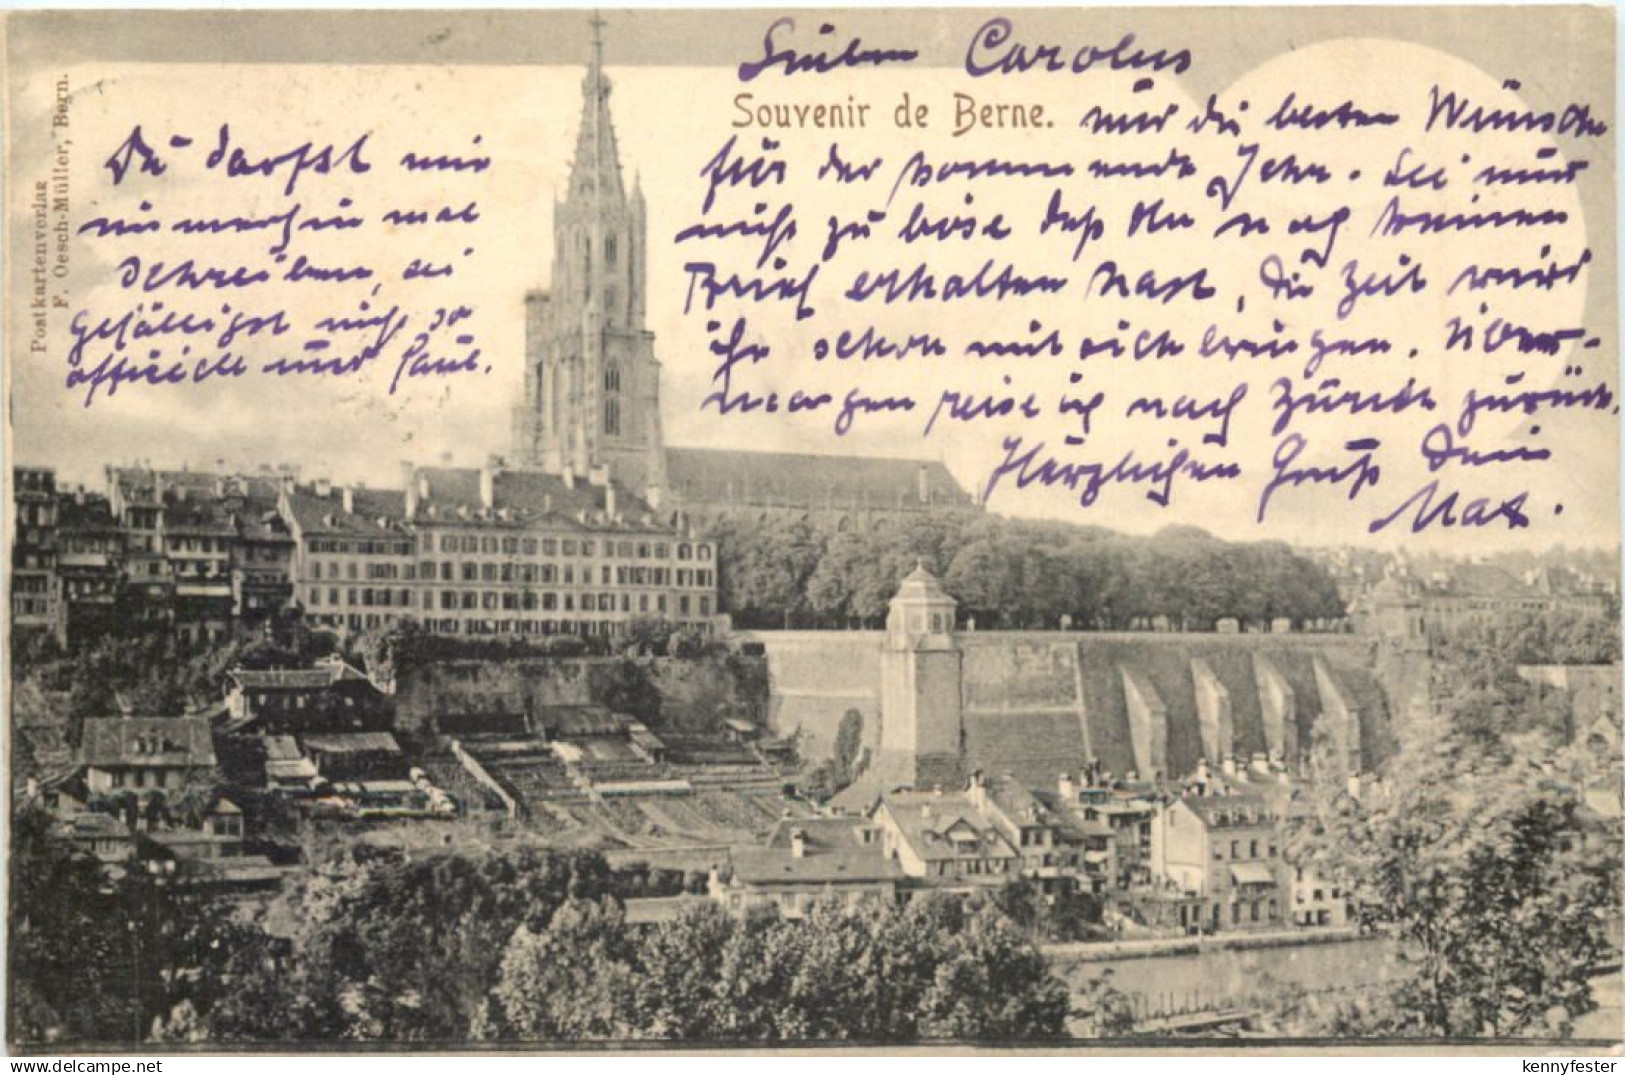 Lieber Carolus
Souvenir de Berne.
nur die besten Wünsche
für das kommende Jahr. Sei nur
nicht zu böse daß du noch keinen
Brief erhalten hast, die Zeit wird
ihn schon mit sich bringen. Über-
morgen reise ich nach Zürich zurück.
Herzlichen Gruß Dein
Max.
Du darfst mir
immerhin mal
schreiben, sei
gefälligst nicht so
officiell und faul.
Postkartenverlag
F. Oesch-Müller, Bern.
kennyfester